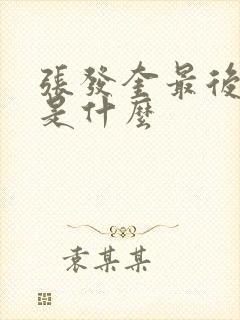 張發奎最後
是什麼
袁某某